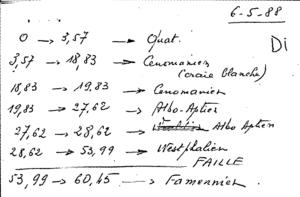 6-5-88
Di
0 → 3,57 → Quat.
3,57 → 18,83 → Cenomanien
(craie blanche)
18,83 → 19,83 → Cenomanien
19,83 → 27,62 → Albo-Aptien
27,62 → 28,62 → Albo Aptien
28,62 → 53,99 → Westphalien
FAILLE
53,99 → 60,45 → Famennien